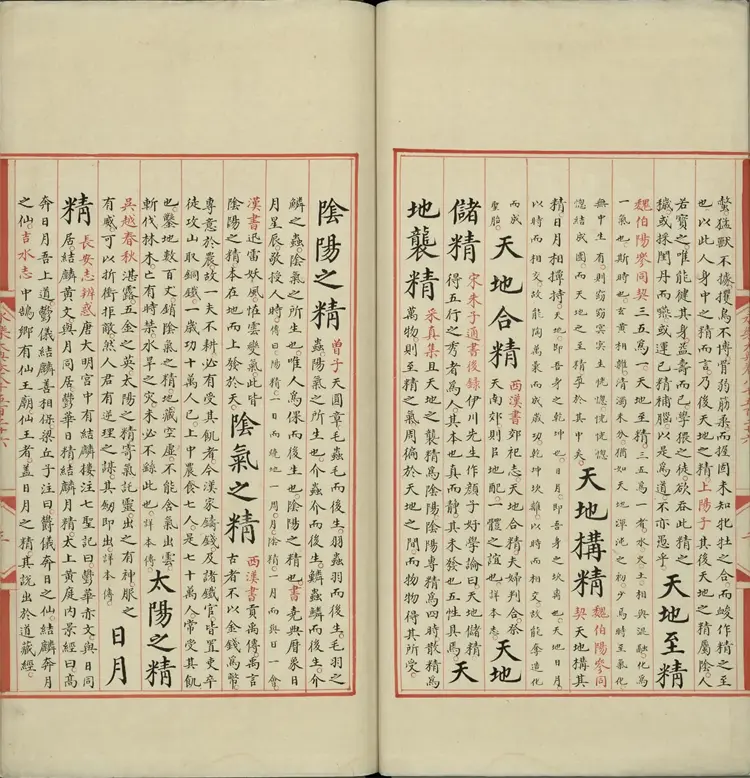 螫猛獸不據攫鳥不搏骨弱筋柔而握固未知牝牡之合而峻作精之至
也以此人身中之精而言乃後天地之精上陽子其後天地之精屬陰人
若寶之唯能健其身益壽而已學猥之徒欲吞此精之
穢或採閨丹而嚥或運己精補腦以是爲道不亦愚乎
天地至精
魏伯陽參同契三五爲一天地至精三五爲一有水火土相與混融化爲
一氣也斯時也玄黃相雜清濁未分猶如天地渾沌之初少焉時至氣化
無中生有則窈窈冥冥生恍惚恍惚
惚結成團而天地之至精孕於其中矣
天地構精
魏伯陽參同
契天地構其
精日月相撢持天地即吾身之乾坤也日月即吾身之坎离也天地日月
以時而相交故能陶萬彙而成歲功乾坤坎離以時而相交故能奪造化
而成
聖胎
天地合精
西漢書郊祀志天地合精夫婦判合祭
天南郊則以地配一體之誼也詳本志
天地
儲精
宋朱子通書後錄伊川先生作顏子好學論曰天地儲精
得五行之秀者爲人其本也真而靜其未發也五性具焉
天
地襲精
采真集且天地之襲精爲陰陽陰陽專精爲四時散精爲
萬物則至精之氣周徧於天地之間而物物得其所受
陰陽之精
曾子天圓章毛蟲毛而後生羽蟲羽而後生毛羽之
蟲陽氣之所生也介蟲介而後生鱗蟲鱗而後生介
鱗之蟲陰氣之所生也唯人爲倮而後生也陰陽之精也書堯典曆象日
月星辰敬授人時傳曰陽精一日而繞地一周月陰精一月而與日一會
漢書迅雷妖風恠雲變氣此皆
陰陽之精本在地而上發於天
陰氣之精
西漢書貢禹傳禹言
古者不以金錢爲幣
專意於農故一夫不耕必有受其飢者今漢家鑄錢及諸鐵官皆置吏卒
徒攻山取銅鐵一歲功十萬人已上中農食七人是七十萬人常受其飢
也鑿地數百丈銷陰氣之精地藏空虛不能含氣出雲
斬伐林木亡有時禁水旱之災未必不繇此也詳本傳
太陽之精
吳越春秋湛露五金之英太陽之精寄氣託靈出之有神服之
有威可以折衝拒敵然人君有逆理之謀其劒即出詳本傳
日月
精
長安志辨惑唐大明宮中有結麟樓注七聖記曰鬱華赤文與日同
居結麟黃文與月同居鬱華日精結麟月精太上黃庭內景經曰高
奔日月吾上道鬱儀結麟善相保梁丘子注曰鬱儀奔日之仙結麟奔月
之仙吉水志中鵠鄉有仙王廟仙王者蓋日月之精其說出於道藏經